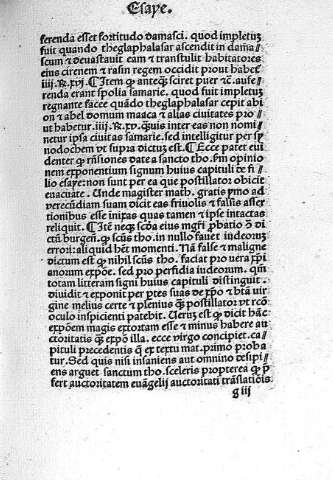 Esaye.
ferenda esset fortitudo damasci. quod impletuʒ
fuit quando theglaphalasar ascendit in dama⸗
scum ⁊ deuastauit eam ⁊ transtulit habitatores
eius cirenem ⁊ rasin regem occidit prout habeť
.iiij. ℟.xvj. ¶ Item ꝙ anteqʒ sciret puer ⁊c̄. aufe⸗
renda erant spolia samarie. quod fuit impletuʒ
regnante facee quādo theglaphalasar cepit abi
on ⁊ abel domum maaca ⁊ alias ciuitates pro
ut habetur .iiij. ℟.xv. qʒuis inter eas non nomi
netur ipsa ciuitas samarie. sed intelligitur per sy
nodochem vt supra dictus est. ¶ Ecce patet eui
denter ꝙ rn̄siones date a sancto tho. fm opinio
nem exponentium signum huius capituli de fi
lio esaye: non sunt per ea que postillator obicit
euacuate. Unde magister math. gratis pmo ad
verecūdiam suam dicit eas friuolis ⁊ falsis asser
tionibus esse inixas quas tamen ⁊ ipse intactas
reliquit. ¶ Itē neqʒ scḋa eius mgr̄i ꝓbatio ꝯ dn̄
ctū burgen̄. ꝙ scūs tho. in nullo fauet iudeoruʒ
errori: aliquid hēt momenti. Nā false ⁊ maligne
dictum est ꝙ nihil scūs tho. faciat pro vera xp̄i
anorum expōe. sed pro perfidia iudeorum. qm̄
totam litteram signi huius capituli distinguit.
diuidit ⁊ exponit per p̄tes suas de xp̄o ⁊ bt̄a vir
gine melius certe ⁊ plenius qʒ postillator vt rcō
oculo inspicienti patebit. Uerus est ꝙ dicit hāc
expōem magis extortam esse ⁊ minus habere au
ctoritatis qʒ expō illa. ecce virgo concipiet. ca⸗
pituli precedentis q̄ ex textu mat. primo proba
tur. Sed quis nisi insaniens aut omnino desipi⸗
ens arguet sanctum tho. sceleris propterea ꝙ p̄
fert auctoritatem euāgelij auctoritati trāslatiōis
g iij